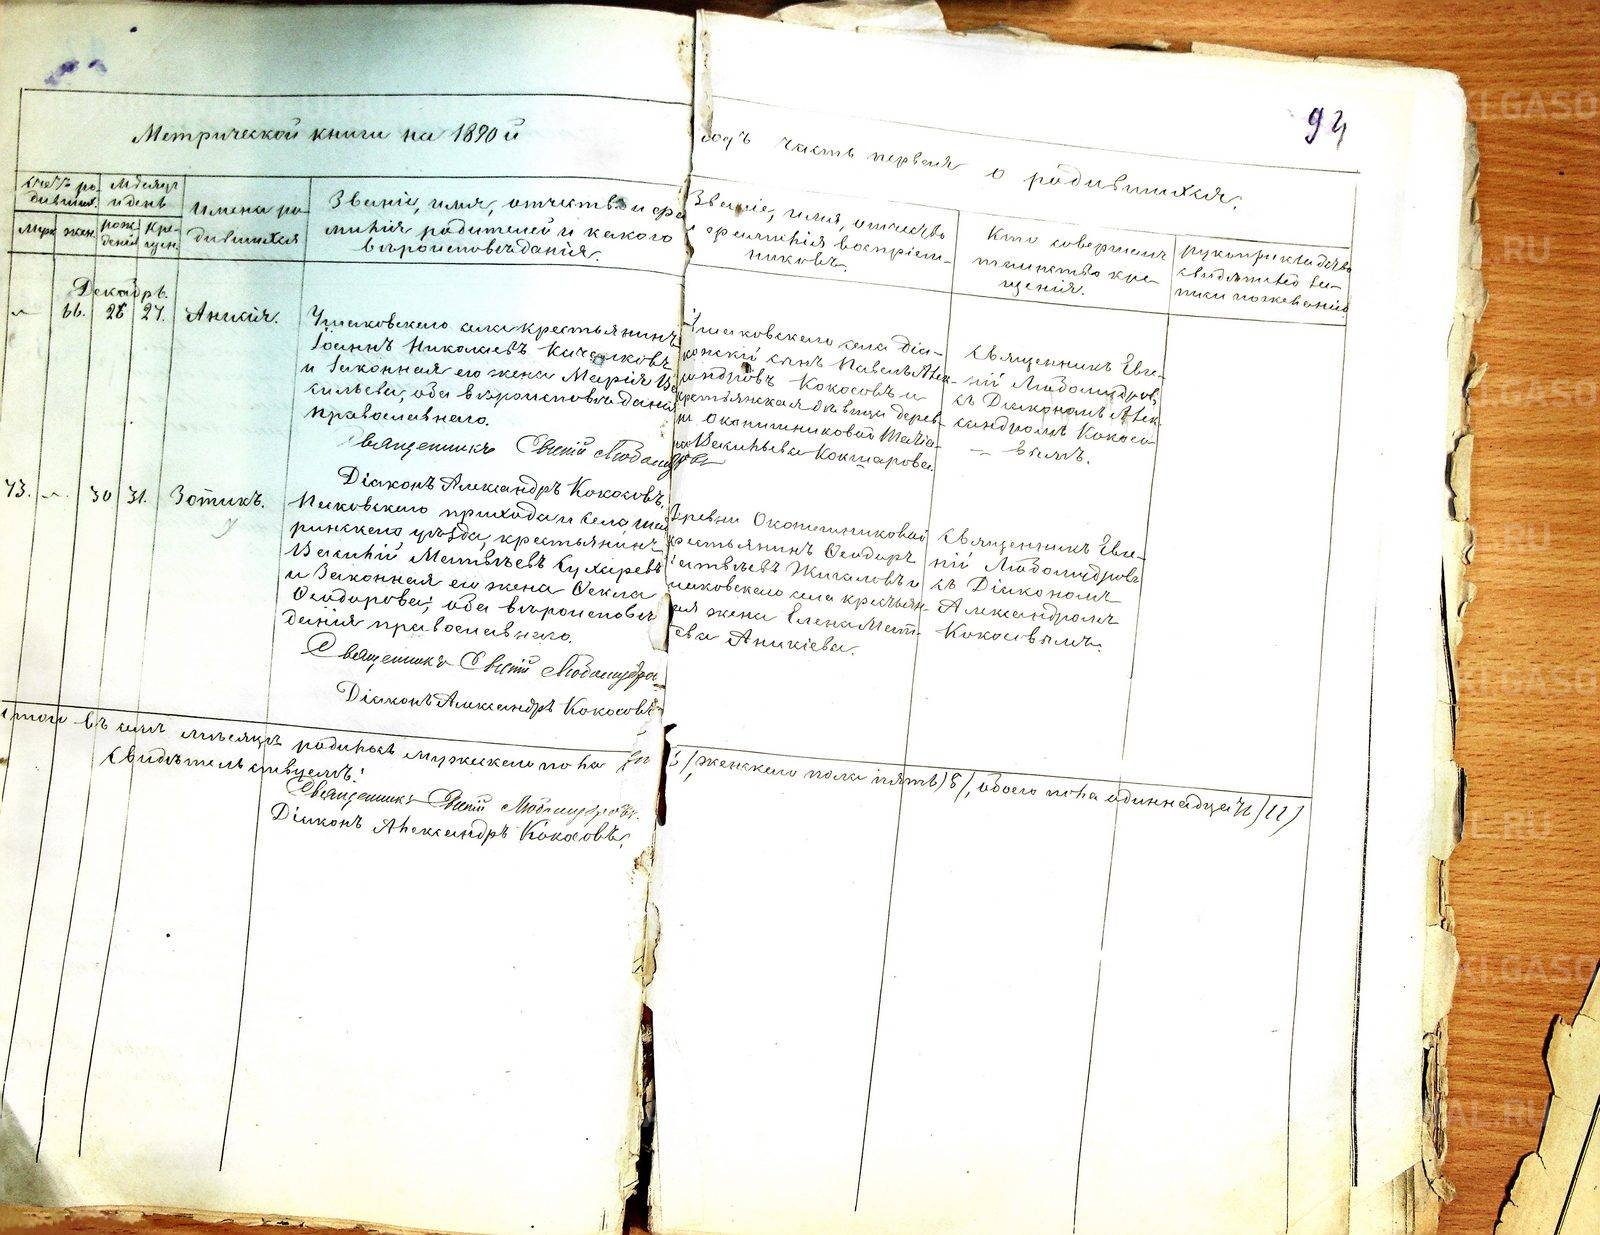 94
Метрической книги на 1890й
годъ часть первая о родившихся.
Счетъ ро-
дивших.
Муж.
жен.
Мѣсяцъ
и день
рож-
денія
кре-
щен.
Имена ро-
дившихся
Званіе, имя, отчество и фа-
милія родителей и какого
вѣроисповѣданія.
Званіе, имя, отчество
и фамилія воспріем-
никовъ.
Кто совершалъ
таинство кре-
щенія.
рукоприкладство
свидѣтелей
Декабрь.
66.
26
27.
Анисія.
Ушаковскаго села крестьянинъ
Іоаннъ Николаевъ Качалковъ
и законная его жена Марія Ва-
сильева, оба вѣроисповѣданія
православнаго.
Священникъ Евгеній Любомудровъ
Діаконъ Александръ Кокосовъ.
Ушаковскаго села діа-
конскій сынъ Павелъ Алек-
сандровъ Кокосовъ и
крестьянская дѣвица дерев-
ни Окопишниковой
Васильева Кокшарова.
Священникъ Евге-
ній Любомудровъ
съ Діакономъ Алек-
сандромъ Кокосо-
вымъ.
73.
30
31.
Зотикъ.
прихода и села
ринскаго уѣзда, крестьянинъ
Василій Матвѣевъ Сухаревъ
и законная его жена Ѳекла
Ѳеодорова; оба вѣроисповѣ-
данія православнаго.
Священникъ Евгеній Любомудровъ
Діаконъ Александръ Кокосовъ
Деревни Окопишниковой
крестьянинъ Ѳеодоръ
Матвѣевъ Жигаловъ и
Ушаковскаго села крестьян-
ская жена Елена Мат-
ѣева Аникіева.
Священникъ Евге-
ній Любомудровъ
съ Діакономъ
Александромъ
Кокосовымъ.
Итого въ семъ мѣсяцѣ родилось мужескаго пола женскаго пола пять) 5/, обоего пола одиннадцать) 11)
Свидѣтельствуемъ:
Священникъ Евгеній Любомудровъ.
Діаконъ Александръ Кокосовъ.